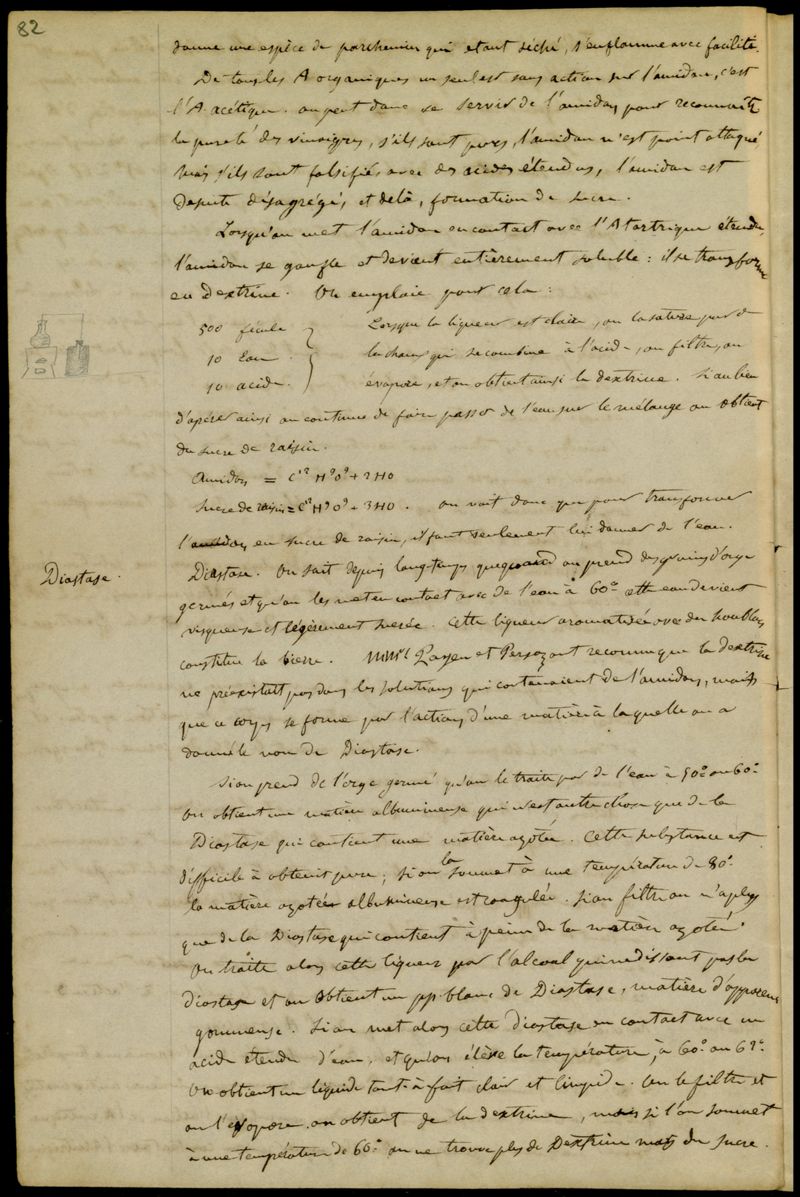 82
donne une espèce de parchemin qui étant séché, s'enflamme avec facilité.
De tous les A organiques un seul est sans action sur l'amidon, c'est
l'A. acétique. on peut donc se servir de l'amidon pour reconnaitre
la pureté des vinaigres, s'ils sont purs, l'amidon n'est point attaqué
mais s'ils sont falsifiés avec des acides étendus, l'amidon est
desuite désagrégé, et delà, formation de sucre.
Lorsqu'on met l'amidon en contact avec l'A tartrique étendu,
l'amidon se gonfle et devient entièrement soluble : il se transforme
en dextrine. On emploie pour cela :
500 fécule } Lorsque la liqueur est claire, on la sature par de
10 Eau } la chaux qui se combine à l'acide, on filtre, on
10 acide } évapore, et on obtient ainsi la dextrine. Si au lieu
d'opérer ainsi on continue de faire passer de l'eau sur le mélange on obtient
du sucre de raisin.
Amidon = C12 H9 O9 + 2HO
Sucre de raisin = C12 H9 O9 + 3HO. on voit donc que pour transformer
l'amidon en sucre de raisin, il faut seulement lui donner de l'eau.
Diastase.
Diastase. On sait depuis long-temps que quand on prend des grains d'orge
germés et qu'on les met en contact avec de l'eau à 60° cette eau devient
visqueuse et légèrement sucrée. Cette liqueur aromatisée avec du houblon
constitue la bierre. MMrs Payen et Persoz ont reconnu que la dextrine
ne préexistait pas dans les solutions qui contenaient de l'amidon, mais
que ce corps se forme par l'action d'une matière à laquelle on a
donné le nom de Diastase.
Si on prend de l'orge germé qu'on le traite par de l'eau à 50° ou 60°
on obtient une matière albumineuse qui n'est autre chose que de la
Diastase qui contient une matière azotée. Cette substance est
difficile à obtenir pure ; si on la soumet à une température de 80°
la matière azotée albumineuse est coagulée. Si on filtre on n'a plus
que de la Diastase qui contient à peine de la matière azotée.
On traite alors cette liqueur par l'alcool qui ne dissout pas la
diastase et on obtient un pp. blanc de Diastase, matière d'apparence
gommeuse. Si on met alors cette diastase en contact avec un
acide étendu d'eau, et qu'on élève la température, à 60° ou 62°
on obtient un liquide tout-à-fait clair et limpide. On le filtre et
on l'évapore on obtient de la dextrine, mais si l'on soumet
à une température de 60° on ne trouve plus de Dextrine mais du sucre.